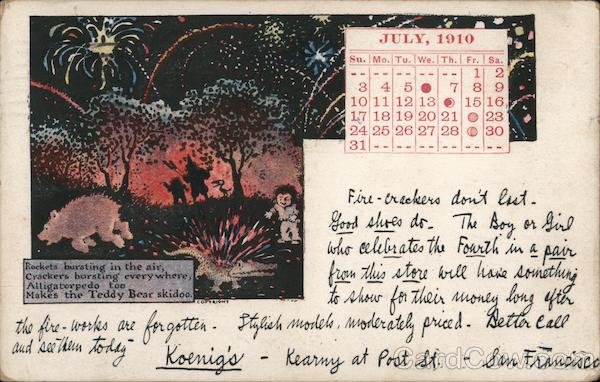 JULY, 1910
Su. Mo. Tu. We. Th. Fr. Sa.
-- -- -- -- -- 1 2
3 4 5 7 8 9
10 11 12 13 15 16
17 18 19 20 21 23
24 25 26 27 28 30
31 -- -- -- -- -- --
Rockets bursting in the air,
Crackers bursting everywhere,
Alligatorpedo too
Makes the Teddy Bear skidoo.
COPYRIGHT
Fire-crackers don't last-
Good shoes do- The Boy or Girl
who celebrates the Fourth in a pair
from this store will have something
to show for their money long after
the fire-works are forgotten- Stylish models, moderately priced- Better call
and see them today- Koenig's - Kearny at Post St. - San Francisco
CardCow.com